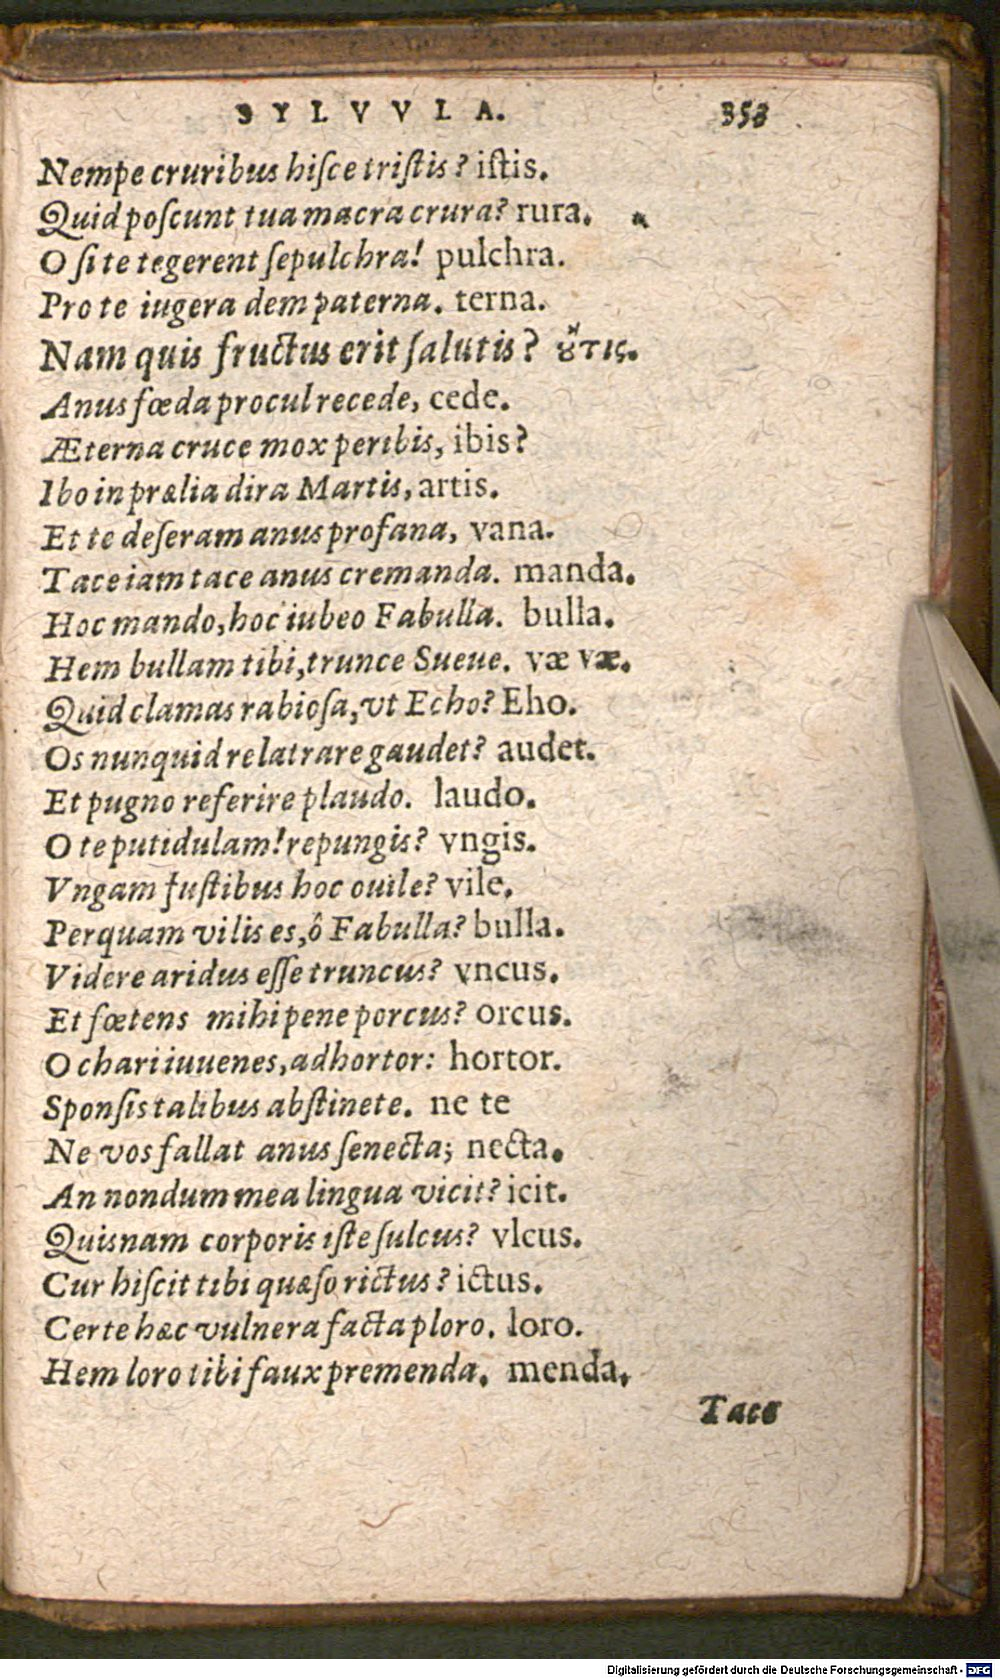 SYLVVLA. 353
Nempe cruribus hiſce triſtis? iſtis.
Quid poſcunt tua macra crura? rura.
O ſi te tegerent ſepulchra! pulchra.
Pro te iugera dem paterna. terna.
Nam quis fructus erit ſalutis? ȣ̓́τις.
Anus fœda procul recede, cede.
Æterna cruce mox peribis, ibis?
Ibo in prælia dira Martis, artis.
Et te deſeram anus profana, vana.
Tace iam tace anus cremanda. manda.
Hoc mando, hoc iubeo Fabulla. bulla.
Hem bullam tibi, trunce Sueue. væ væ.
Quid clamas rabioſa, vt Echo? Eho.
Os nunquid relatrare gaudet? audet.
Et pugno referire plaudo. laudo.
O te putidulam! repungis? vngis.
Vngam fuſtibus hoc ouile? vile.
Perquam vilis es, ô Fabulla? bulla.
Videre aridus eſſe truncus? vncus.
Et fœtens mihi pene porcus? orcus.
O chari iuuenes, adhortor: hortor.
Sponſis talibus abſtinete. ne te
Ne vos fallat anus ſenecta; necta.
An nondum mea lingua vicit? icit.
Quisnam corporis iſte ſulcus? vlcus.
Cur hiſcit tibi quæſo rictus? ictus.
Certe hæc vulnera facta ploro. loro.
Hem loro tibi faux premenda. menda.
Tace
Digitalisierung gefördert durch die Deutsche Forschungsgemeinschaft - DFG